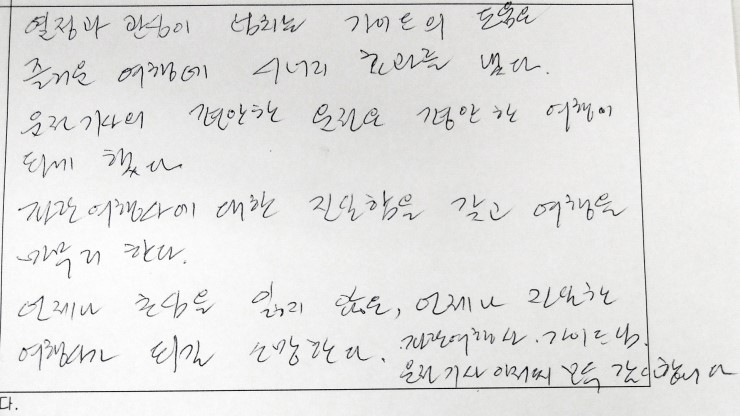 열정과 관심이 넘치는 가이드의 도움으로
즐거운 여행에 시너지 효과를 냈다.
운전기사의 편안한 운전으로 평안한 여행이
되게 했다.
여행사에 대한 친밀함을 갖고 여행을
마무리 한다.
언제나 초심을 잃지 않고, 언제나 친밀한
여행사가 되길 소망한다. 여행사. 가이드님.
운전기사 아저씨 모두 감사합니다
다.